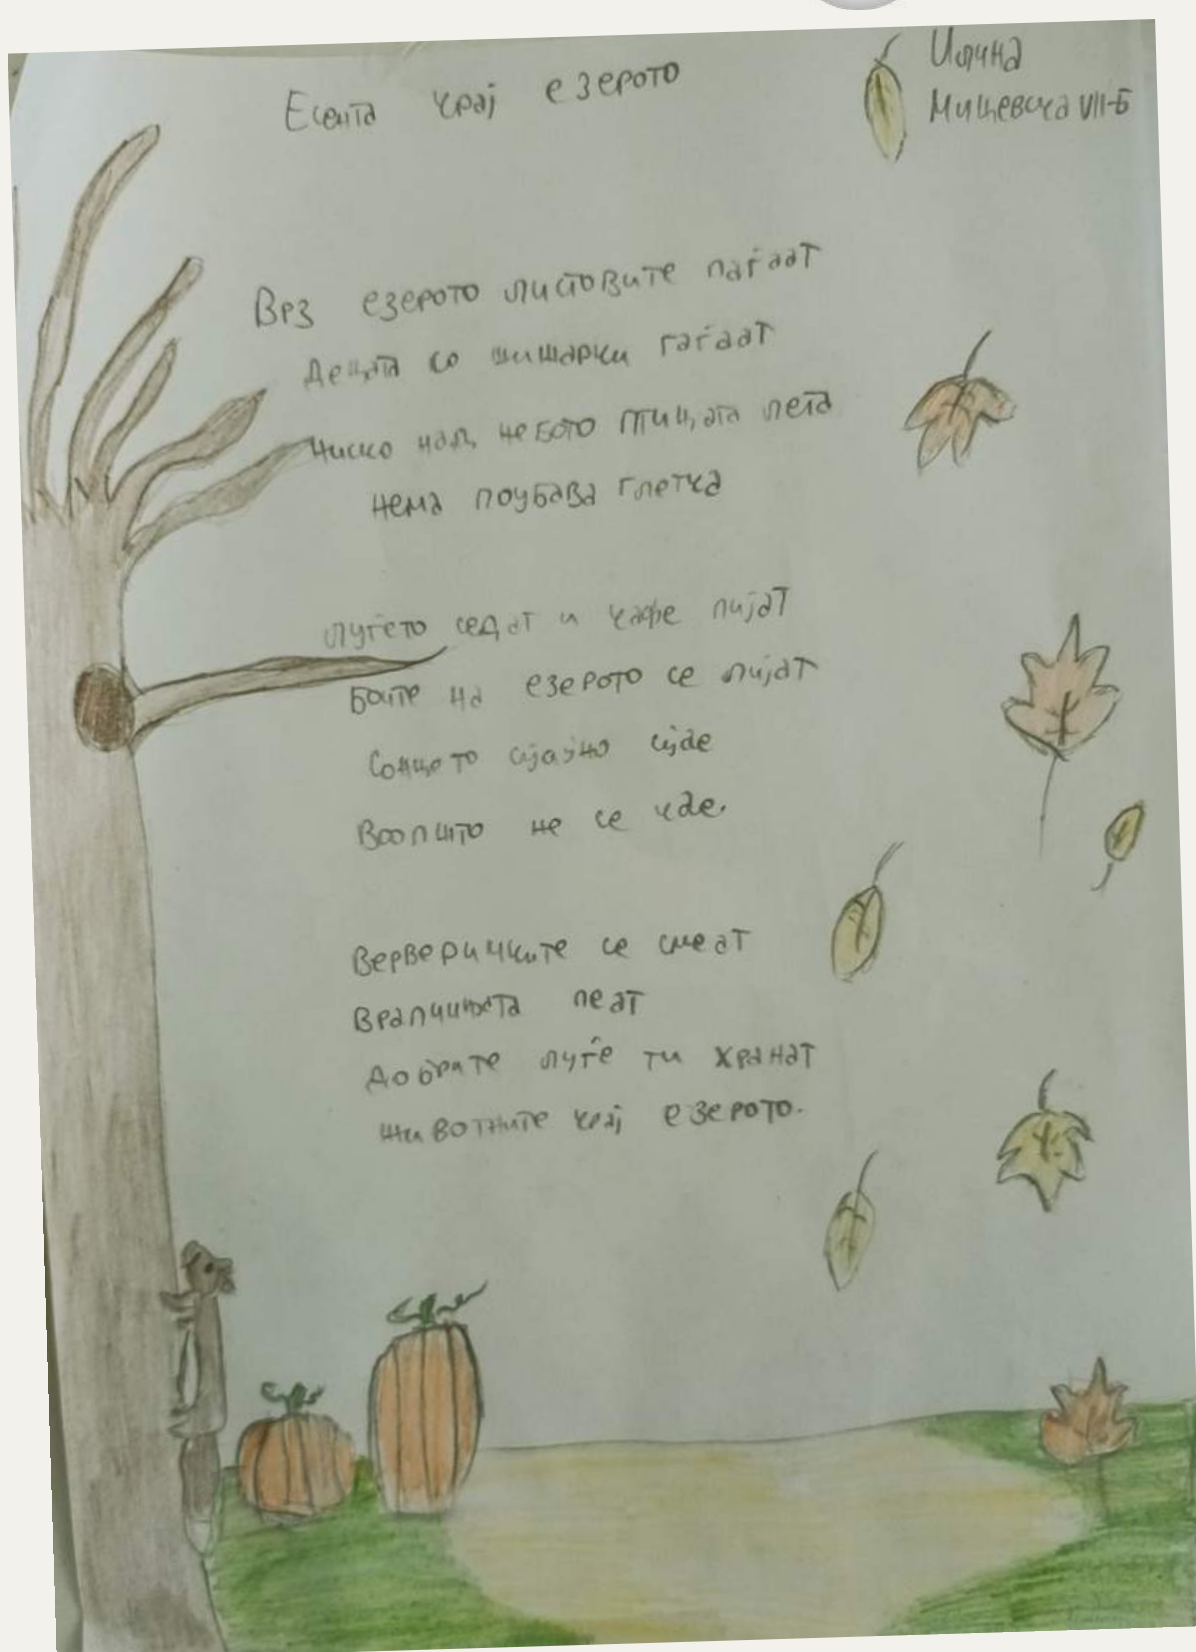 Есента крај езерото
Илина
Мицевска VII-Б
Врз езерото листовите паѓаат
Децата со шишарки гаѓаат
Ниско над небото птицата лета
нема поубава глетка
луѓето седат и кафе пијат
Боите на езерото се лијат
Сонцето сјајно сјае
Воопшто не се кае.
Ververичките се смеат
Врапчињата пеат
Добрите луѓе ги хранат
животните крај езерото.